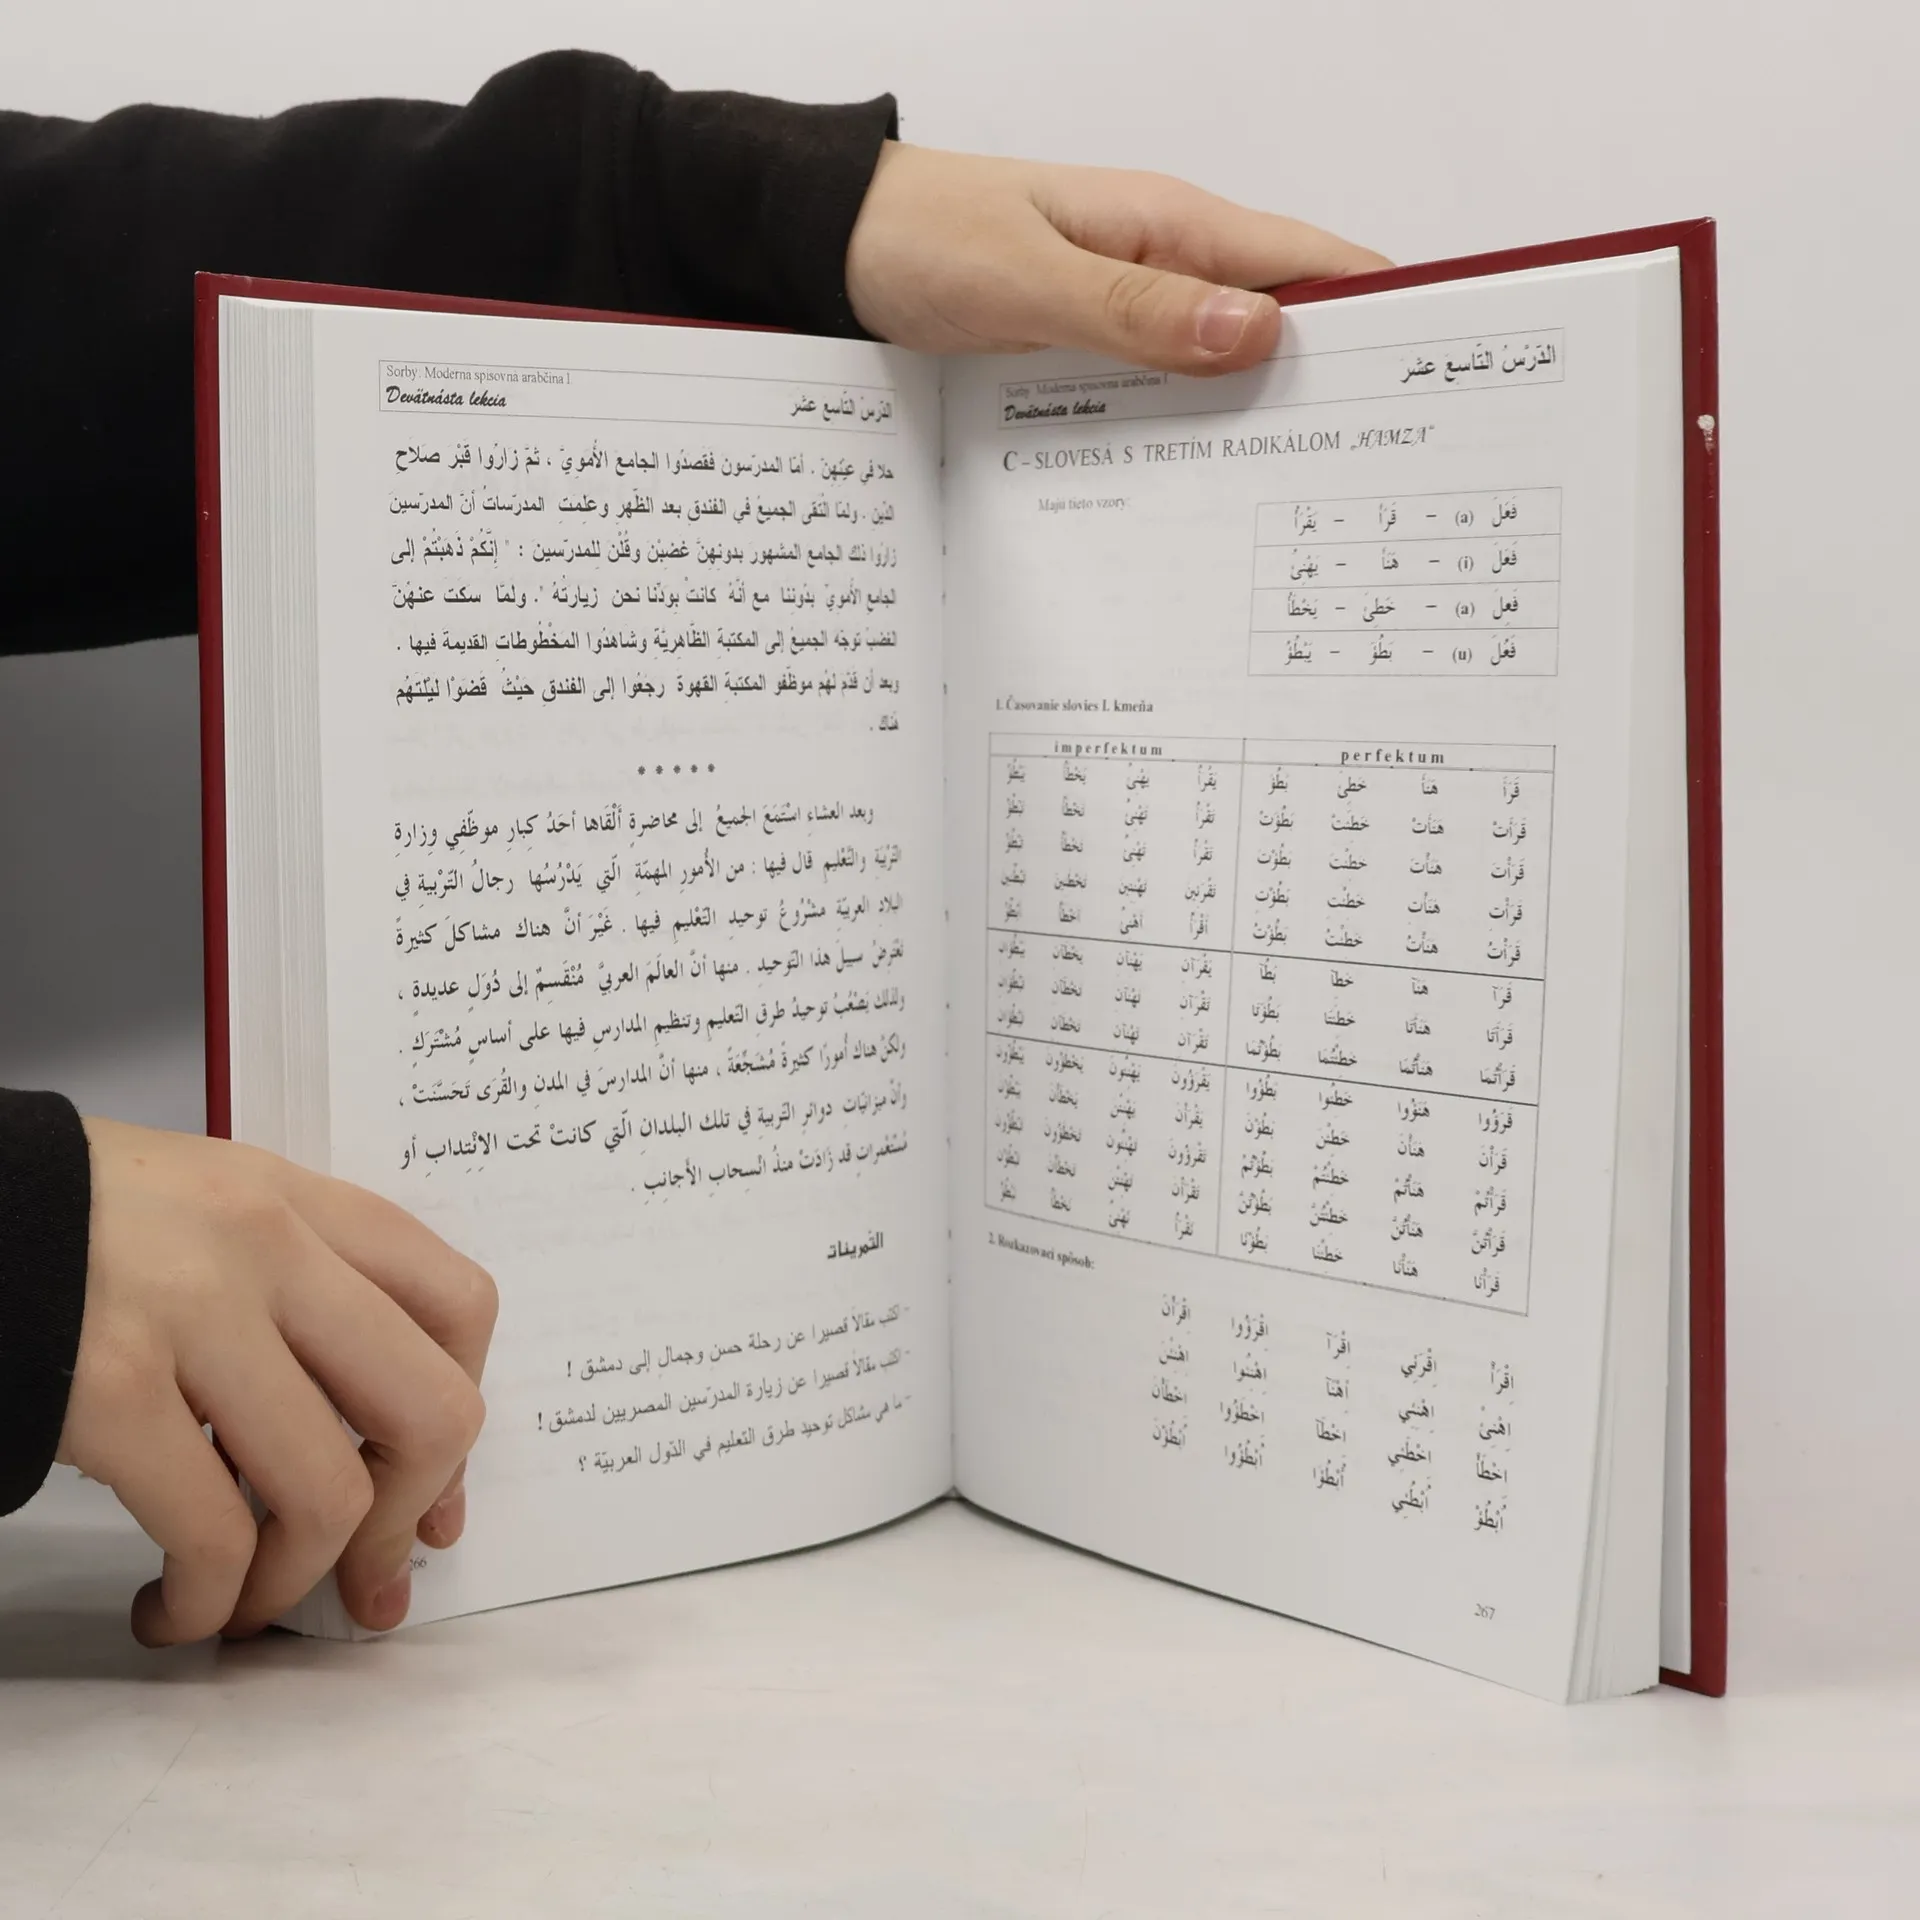 Sorby: Moderna spisovná arabčina I
Devätnásta lekcia
الدّرسُ التّاسع عشَر
حلا في عينِهِنّ . أمّا المدرّسون فقَصَدُوا الجامعَ الأُمَويَّ ، ثمّ زارُوا قَبْرَ صلاحِ
الدّين . ولمّا الْتَقى الجميعُ في الفندقِ بعد الظّهرِ وعلِمتِ المدرّساتُ أنّ المدرّسين
زارُوا ذلك الجامعَ المشهورَ بدونِهِنَّ غَضِبْنَ وقُلْنَ لِلمدرّسين : " إِنَّكُمْ ذَهَبْتُمْ إلى
الجامعِ الأُمويِّ بدُونِنا مع أنّهُ كانتْ بوُدِّنا نحن زيارتُهُ ". ولمّا سكَت عنهُنَّ
الغضبُ توجّه الجميعُ إلى المكتبةِ الظّاهِريّةِ وشاهدُوا المَخْطُوطاتِ القديمةَ فيها .
وبعد أن قدّم لهُم موظّفو المكتبةِ القهوةَ رجَعُوا إلى الفندقِ حَيْثُ قَضَوْا لَيْلَتَهُم
هناك .
* * * * *
وبعد العشاءِ اسْتَمَعَ الجميعُ إلى محاضرةٍ أَلْقَاها أحَدُ كِبارِ موظّفِي وِزارةِ
التّرْبِيَةِ والتَّعْلِيم قال فيها : من الأُمورِ المهمّةِ الّتي يَدْرُسُها رجالُ التّرْبيةِ في
البلادِ العربيّةِ مشْرُوعُ توحيدِ التَعْليمِ فيها . غَيْرَ أنَّ هناك مشاكلَ كثيرةً
تَعْتَرِضُ سبيلَ هذا التّوحيدِ . منها أنَّ العالَمَ العربيَّ مُنْقَسِمٌ إلى دُوَلٍ عديدةٍ ،
ولذلك يَصْعُبُ توحيدُ طرقِ التّعليمِ وتنظيمِ المدارسِ فيها على أساسٍ مُشْتَرَكٍ .
ولكنَّ هناك أُمورًا كثيرةً مُشَجِّعَةً ، منها أنَّ المدارسَ في المدنِ والقُرَى تَحَسَّنَتْ ،
وأنّ ميزانيّاتِ دوائرِ التّربيةِ في تلك البلدانِ الّتي كانتْ تحت الاِنْتِدابِ أو
مُسْتَعْمَرات قد زَادَتْ منذُ انْسِحابِ الأَجانِبِ .
التّمرينات
- اكتب مقالاً قصيرا عن رحلة حسن وجمال إلى دمشق !
- اكتب مقالاً قصيرا عن زيارة المدرّسين المصريين لدمشق !
- ما هي مشاكل توحيد طرق التعليم في الدّول العربيّة ؟
266
Sorby: Moderna spisovná arabčina I
Devätnásta lekcia
الدّرْسُ التّاسِعَ عشَرَ
C – SLOVESÁ S TRETÍM RADIKÁLOM „HAMZA“
Majú tieto vzory:
فَعَلَ (a) – قَرَأَ – يَقْرَأُ
فَعَلَ (i) – هَنَأَ – يَهْنِئُ
فَعِلَ (a) – خَطِئَ – يَخْطَأُ
فَعُلَ (u) – بَطُؤَ – يَبْطُؤُ
1. Časovanie slovies I. kmeňa
imperfektum perfektum
قَرَأَ هَنَأَ خَطِئَ بَطُؤَ يَقْرَأُ يَهْنِئُ يَخْطَأُ يَبْطُؤُ
قَرَأَتْ هَنَأَتْ خَطِئَتْ بَطُؤَتْ تَقْرَأُ تَهْنِئُ تَخْطَأُ تَبْطُؤُ
قَرَأْتَ هَنَأْتَ خَطِئْتَ بَطُؤْتَ تَقْرَأُ تَهْنِئُ تَخْطَأُ تَبْطُؤُ
قَرَأْتِ هَنَأْتِ خَطِئْتِ بَطُؤْتِ تَقْرَئِينَ تَهْنِئِينَ تَخْطَئِينَ تَبْطُئِينَ
قَرَأْتُ هَنَأْتُ خَطِئْتُ بَطُؤْتُ أَقْرَأُ أَهْنِئُ أَخْطَأُ أَبْطُؤُ
قَرَآ هَنَآ خَطِآ بَطُآ يَقْرَآن يَهْنِآن يَخْطَآن يَبْطُؤَان
قَرَأَتَا هَنَأَتَا خَطِئَتَا بَطُؤَتَا تَقْرَآن تَهْنِآن تَخْطَآن تَبْطُؤَان
قَرَأْتُمَا هَنَأْتُمَا خَطِئْتُمَا بَطُؤْتُمَا تَقْرَآن تَهْنِآن تَخْطَآن تَبْطُؤَان
قَرَؤُوا هَنَؤُوا خَطِئُوا بَطُؤُوا يَقْرَؤُونَ يَهْنِئُونَ يَخْطَؤُونَ يَبْطُؤُونَ
قَرَأْنَ هَنَأْنَ خَطِئْنَ بَطُؤْنَ يَقْرَأْنَ يَهْنِئْنَ يَخْطَأْنَ يَبْطُؤْنَ
قَرَأْتُمْ هَنَأْتُمْ خَطِئْتُمْ بَطُؤْتُمْ تَقْرَؤُونَ تَهْنِئُونَ تَخْطَؤُونَ تَبْطُؤُونَ
قَرَأْتُنَّ هَنَأْتُنَّ خَطِئْتُنَّ بَطُؤْتُنَّ تَقْرَأْنَ تَهْنِئْنَ تَخْطَأْنَ تَبْطُؤْنَ
قَرَأْنَا هَنَأْنَا خَطِئْنَا بَطُؤْنَا نَقْرَأُ نَهْنِئُ نَخْطَأُ نَبْطُؤُ
2. Rozkazovací spôsob:
اِقْرَأْ اِقْرَئِي اِقْرَآ اِقْرَؤُوا اِقْرَأْنَ
اِهْنِئْ اِهْنِئِي اِهْنِآ اِهْنِئُوا اِهْنِئْنَ
اِخْطَأْ اِخْطَئِي اِخْطَآ اِخْطَؤُوا اِخْطَأْنَ
اُبْطُؤْ اُبْطُئِي اُبْطُؤَا اُبْطُؤُوا اُبْطُؤْنَ
267